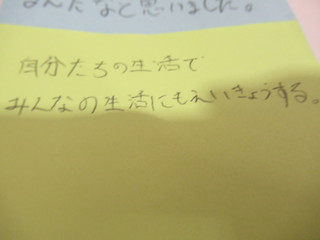 なんだなと思いました。
自分たちの生活で
みんなの生活にもえいきょうする。